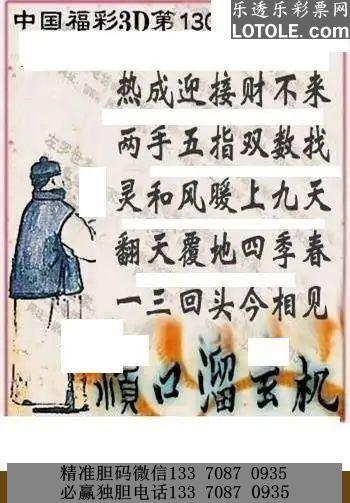 中国福彩3D第130
乐透乐彩票网
LOTOLE.COM
热成迎接财不来
两手五指双数找
灵和风暖上九天
翻天覆地四季春
一三回头今相见
顺口溜玄机
精准胆码微信133 7087 0935
必赢独胆电话133 7087 0935